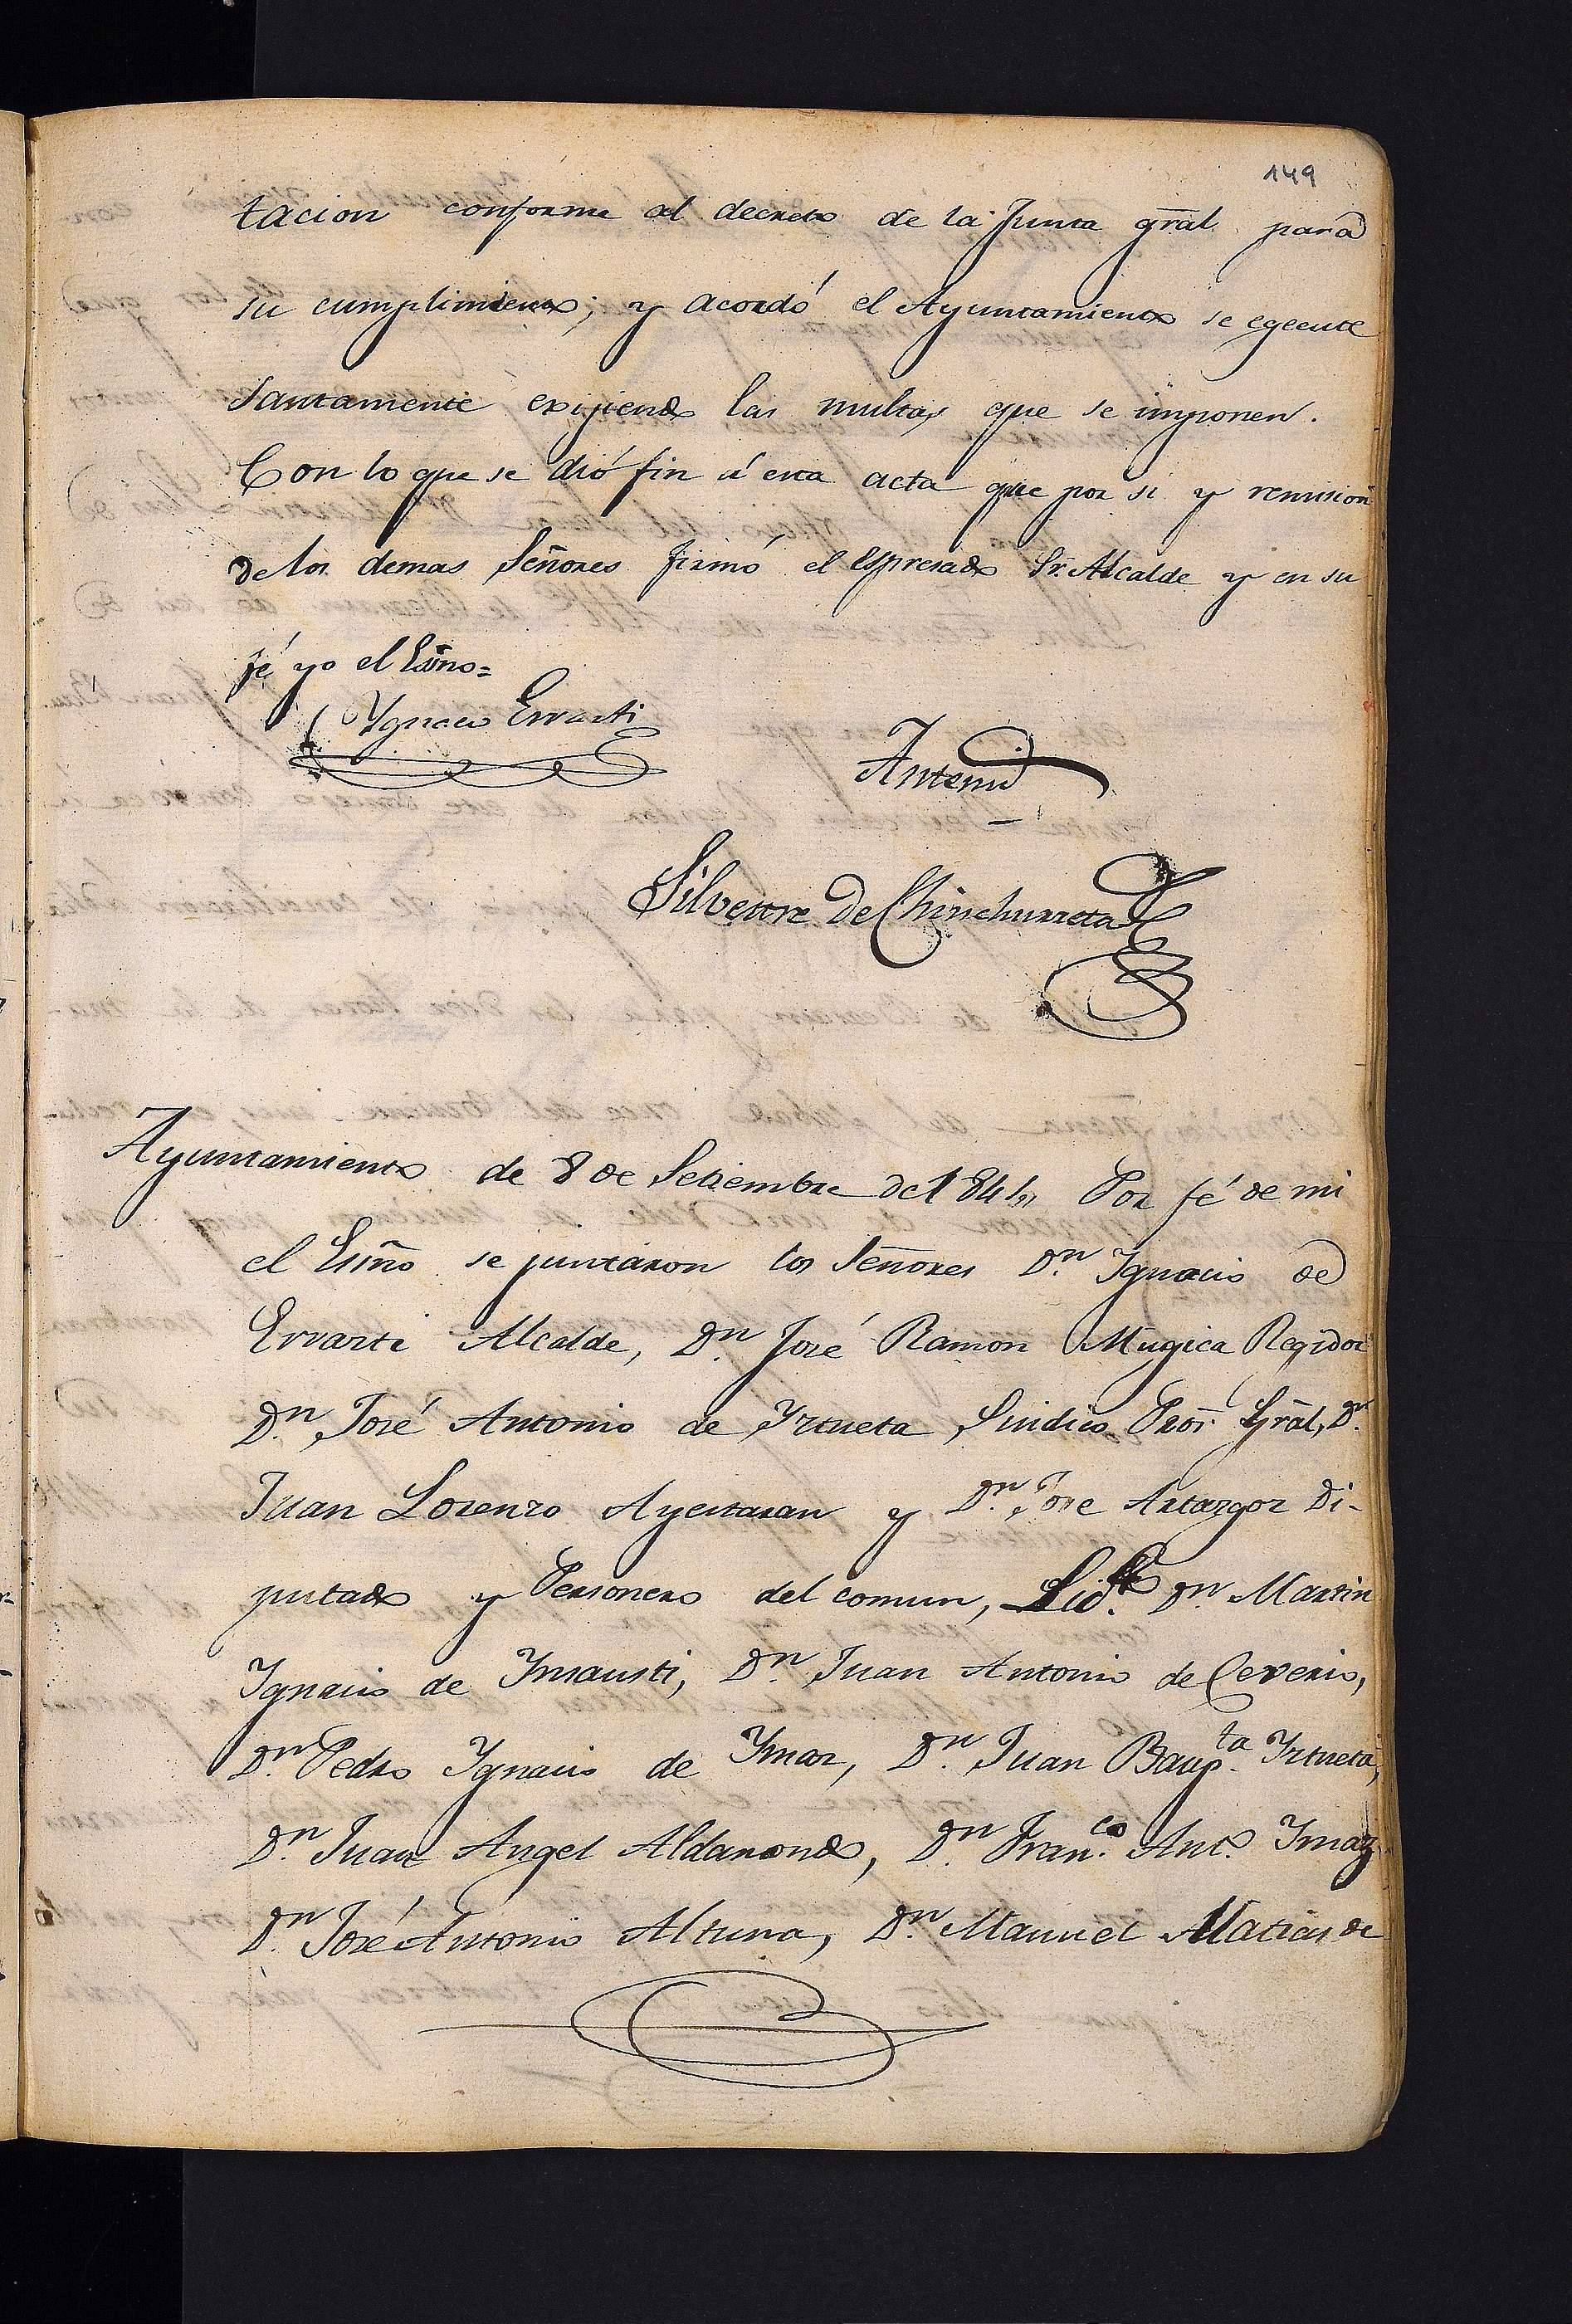 149
tacion conforme al decreto de la Junta gral para
su cumplimiento; y acordó el Ayuntamiento se egecute
santamente exijiendo las multas que se imponen.
Con lo que se dió fin á esta acta que por si y remision
de los demas Señores firmó el espresado Sr. Alcalde y en su
fé yo el Esño=
Ygnacio Errasti
Antemi
Silvestre de Chinchurreta
Ayuntamiento de 8 de Setiembre de 1841, Por fé de mi
el Esño se juntaron los Señores Dn. Ignacio de
Errasti Alcalde, Dn. José Ramon Mugica Regidor
Dn. José Antonio de Yztueta Sindico Pror. Gral, Dn.
Juan Lorenzo Ayestaran y Dn. Jose Astazgor Di-
putado y Personero del comun, Licdo. Dn. Martin
Ygnacio de Ynsausti, Dn. Juan Antonio de Ceverio,
Dn. Pedro Ygnacio de Ymaz, Dn. Juan Baupta. Yztueta,
Dn. Juan Angel Aldanondo, Dn. Franco. Anto. Ymaz
Dn. José Antonio Altuna, Dn. Manuel Matias de